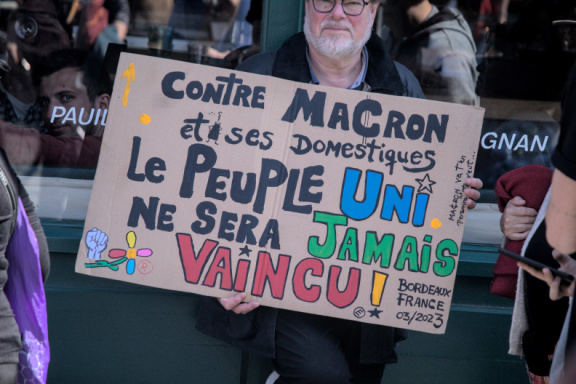 PAUIL
GNAN
CONTRE MACRON
et ses DOMESTIQUES
LE PEUPLE UNI
NE SERA JAMAIS
VAINCU!
BORDEAUX
FRANCE
03/2023
MACRON VA T'EN